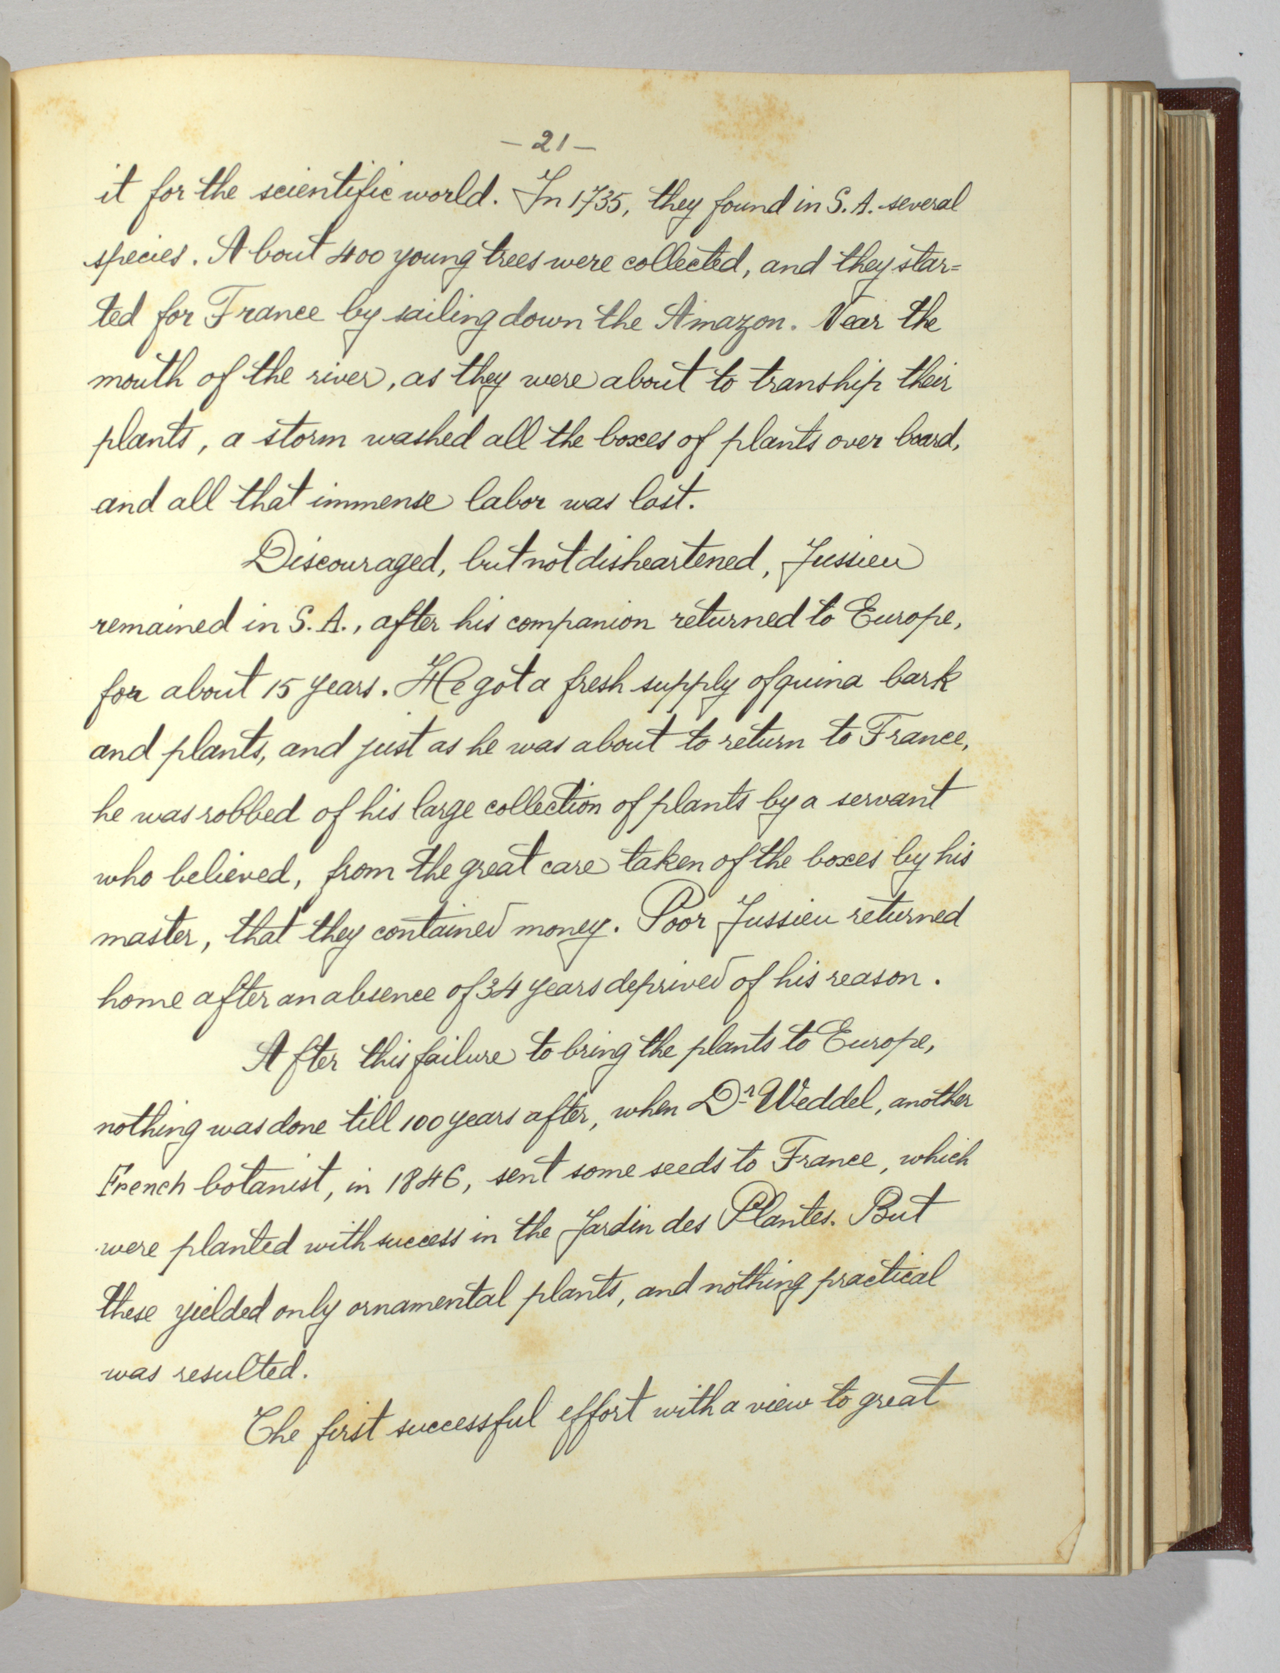 — 21 —
it for the scientific world. In 1735, they found in S. A. several
species. About 400 young trees were collected, and they star=
ted for France by sailing down the Amazon. Near the
mouth of the river, as they were about to tranship their
plants, a storm washed all the boxes of plants over board,
and all that immense labor was lost.
Discouraged, but not disheartened, Jussieu
remained in S. A., after his companion returned to Europe,
for about 15 years. He got a fresh supply of quina bark
and plants, and just as he was about to return to France,
he was robbed of his large collection of plants by a servant
who believed, from the great care taken of the boxes by his
master, that they contained money. Poor Jussieu returned
home after an absence of 34 years deprived of his reason.
After this failure to bring the plants to Europe,
nothing was done till 100 years after, when Dr Weddel, another
French botanist, in 1846, sent some seeds to France, which
were planted with success in the Jardin des Plantes. But
these yielded only ornamental plants, and nothing practical
was resulted.
The first successful effort with a view to great